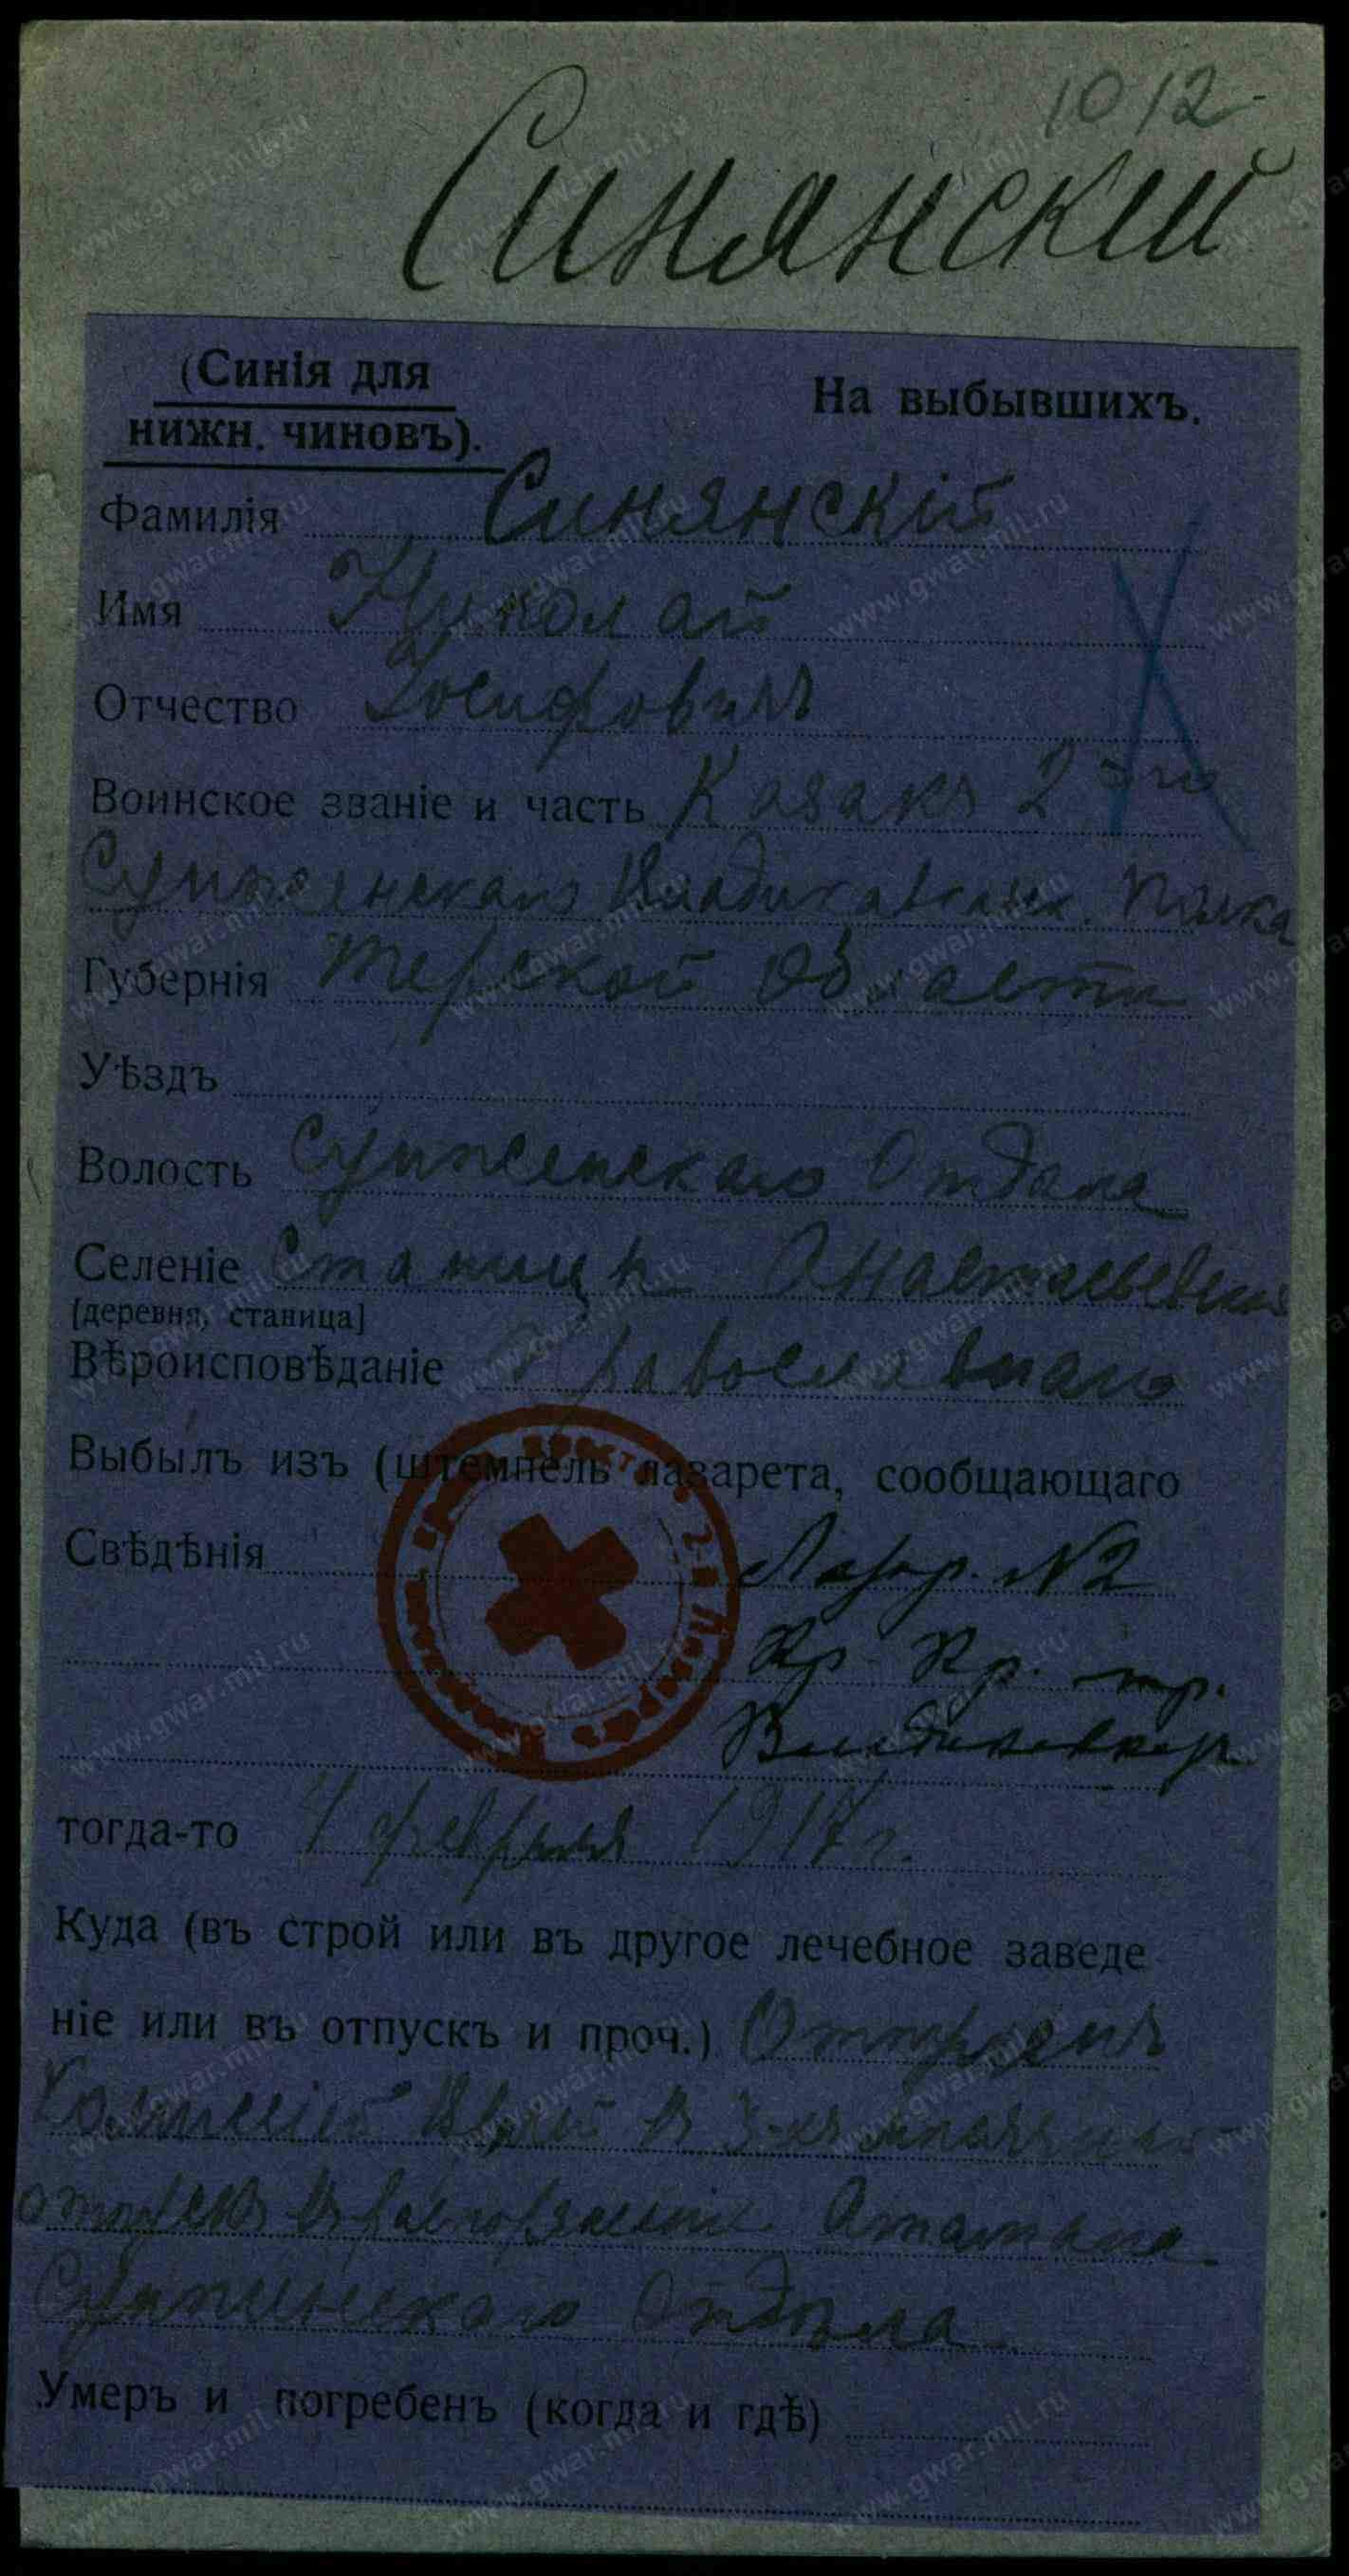 1012
Синянскій
(Синія для
нижн. чиновъ).
На выбывшихъ.
Фамилія Синянскій
Имя Николай
Отчество Іосифовичъ
Воинское званіе и часть Казакъ 2 го
Сунженскаго Владикавказк. Полка
Губернія Терской Области
Уѣздъ
Волость Сунженскаго Отдала
Селеніе Станицы
[деревня, станица]
Вѣроисповѣданіе Православнаго
Выбылъ изъ (штемпель лазарета, сообщающаго
Свѣдѣнія Лазар. №2
Кр. Кр. гр.
тогда-то февраля 1917 г.
Куда (въ строй или въ другое лечебное заведе
ніе или въ отпускъ и проч.)
въ распоряженіе Атамана
Сунженскаго Отдѣла
Умеръ и погребенъ (когда и гдѣ)
www.gwar.mil.ru